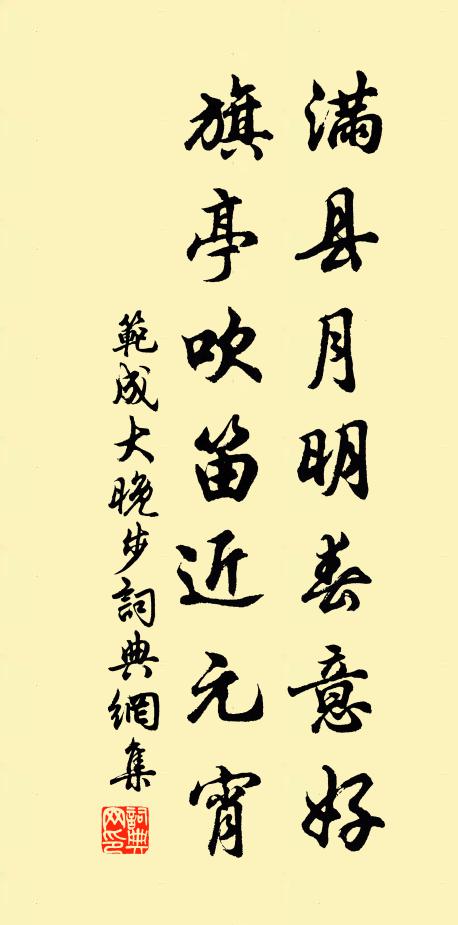 满县月明春意好
旗亭吹笛近元宵
範成大晚步詞典網集
詞典网印